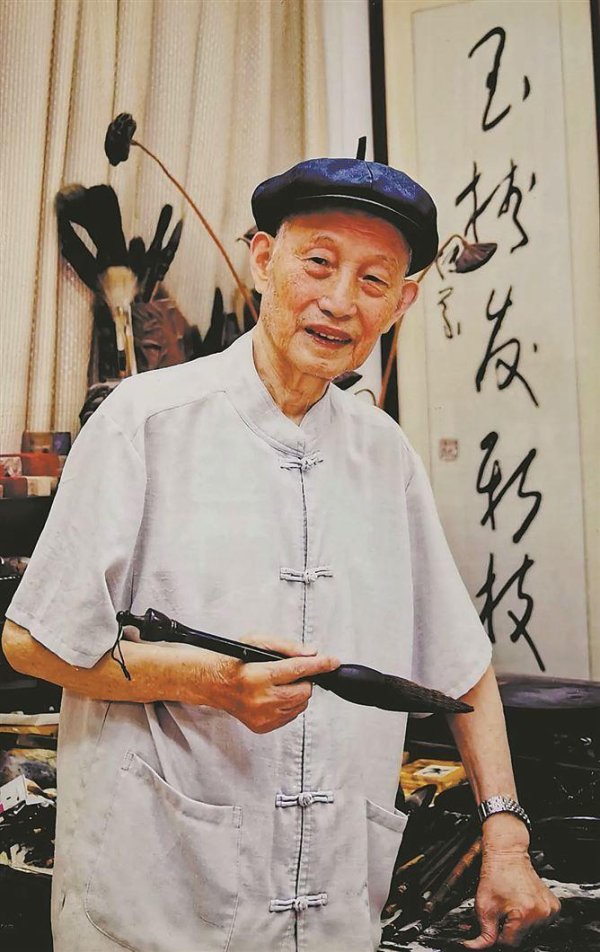 玉樹发新枝